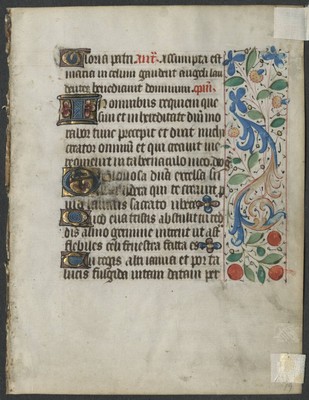 Gloria patri. Añ. Assumpta est
maria in celum gaudent angeli lau
dantes benedicunt dominum. Capim̃.
In omnibus requiem que
siui et in hereditate dñi mo
rabor tunc precepit et dixit michi
creator omnium et qui creauit me
requieuit in tabernaculo meo. deo
O gloriosa dñā excelsa su
pra sidera qui te creauit p
uide lactasti sacrato ubere
Quod eua tristis abstulit tu red
dis almo germine intrent ut ast
flebiles celi fenestra facta es
Tu regis alti ianua et porta
lucis fulgida uitam datam per